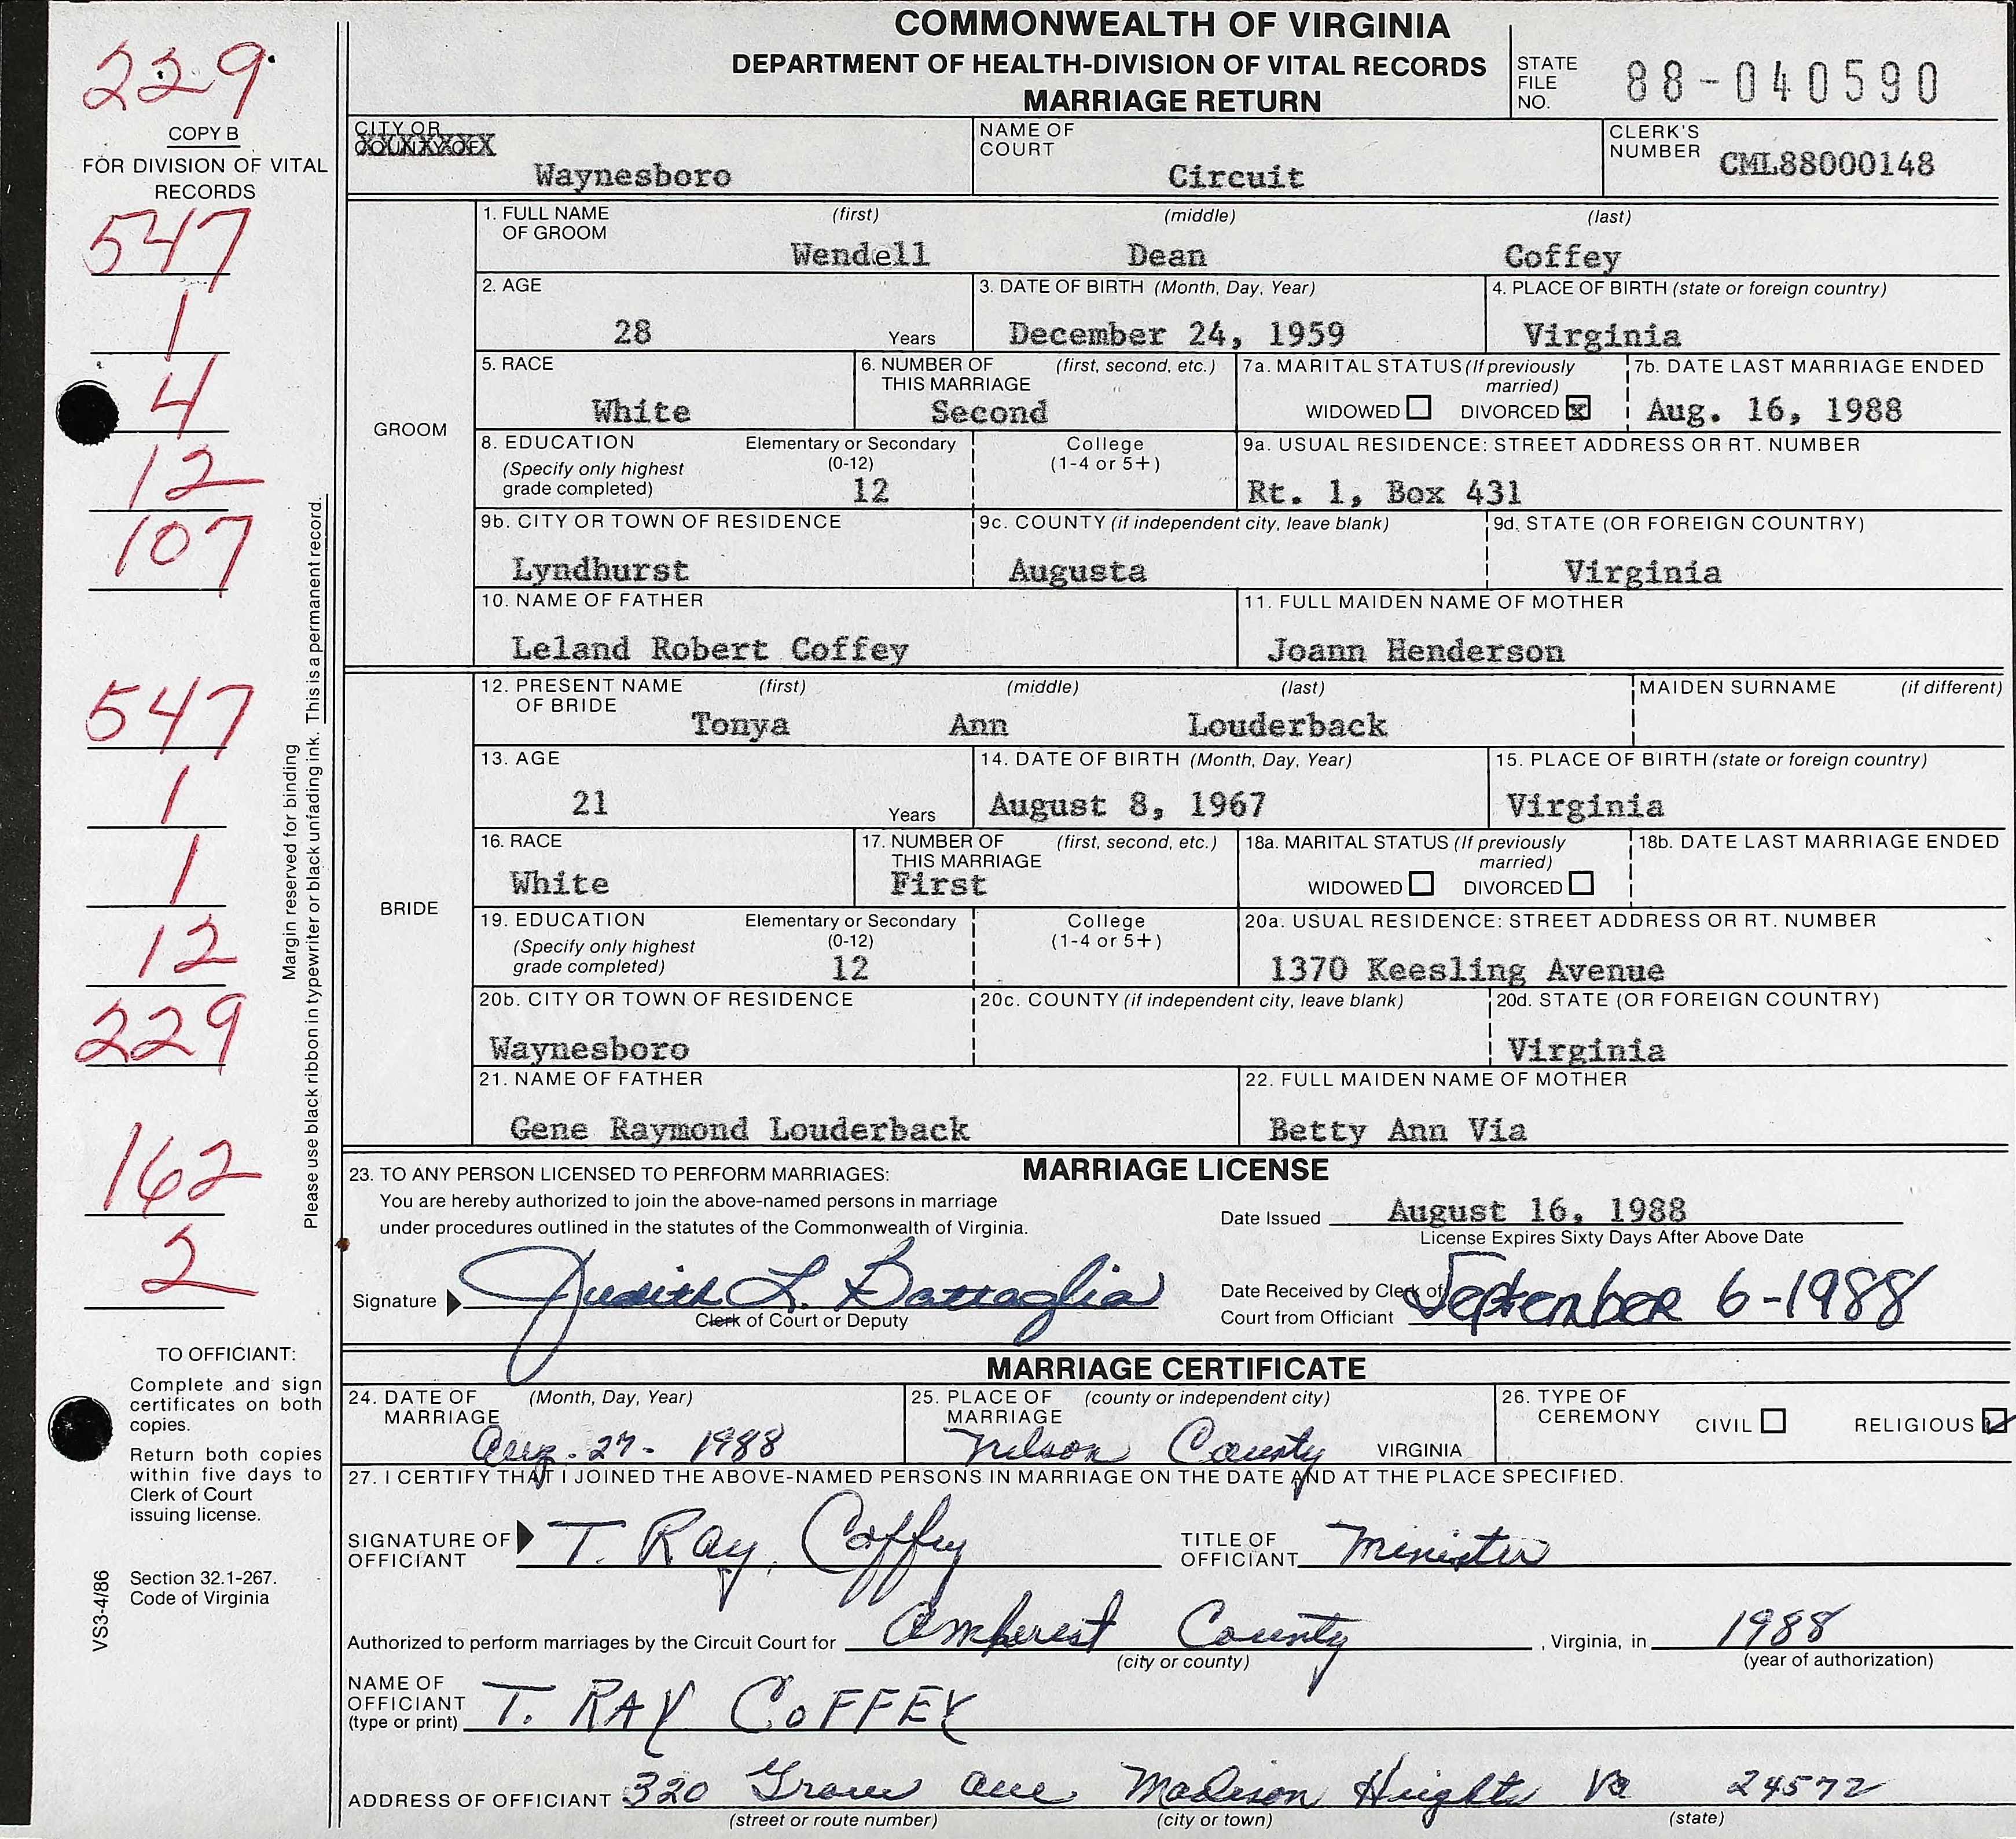 COMMONWEALTH OF VIRGINIA
DEPARTMENT OF HEALTH-DIVISION OF VITAL RECORDS
MARRIAGE RETURN
STATE FILE NO. 88-040590
229
COPY B
FOR DIVISION OF VITAL RECORDS
547
1
4
12
107
547
1
1
12
229
162
2
Margin reserved for binding
Please use black ribbon in typewriter or black unfading ink. This is a permanent record.
TO OFFICIANT:
Complete and sign
certificates on both
copies.
Return both copies
within five days to
Clerk of Court
issuing license.
Section 32.1-267.
Code of Virginia
VS3-4/86
CITY OR COUNTY OF Waynesboro
NAME OF COURT Circuit
CLERK'S NUMBER CML88000148
GROOM
1. FULL NAME OF GROOM (first) (middle) (last)
Wendell Dean Coffey
2. AGE 28 Years
3. DATE OF BIRTH (Month, Day, Year) December 24, 1959
4. PLACE OF BIRTH (state or foreign country) Virginia
5. RACE White
6. NUMBER OF THIS MARRIAGE (first, second, etc.) Second
7a. MARITAL STATUS (If previously married) WIDOWED DIVORCED x
7b. DATE LAST MARRIAGE ENDED Aug. 16, 1988
8. EDUCATION (Specify only highest grade completed) Elementary or Secondary (0-12) 12 College (1-4 or 5+)
9a. USUAL RESIDENCE: STREET ADDRESS OR RT. NUMBER Rt. 1, Box 431
9b. CITY OR TOWN OF RESIDENCE Lyndhurst
9c. COUNTY (if independent city, leave blank) Augusta
9d. STATE (OR FOREIGN COUNTRY) Virginia
10. NAME OF FATHER Leland Robert Coffey
11. FULL MAIDEN NAME OF MOTHER Joann Henderson
BRIDE
12. PRESENT NAME OF BRIDE (first) (middle) (last) MAIDEN SURNAME (if different)
Tonya Ann Louderback
13. AGE 21 Years
14. DATE OF BIRTH (Month, Day, Year) August 8, 1967
15. PLACE OF BIRTH (state or foreign country) Virginia
16. RACE White
17. NUMBER OF THIS MARRIAGE (first, second, etc.) First
18a. MARITAL STATUS (If previously married) WIDOWED DIVORCED
18b. DATE LAST MARRIAGE ENDED
19. EDUCATION (Specify only highest grade completed) Elementary or Secondary (0-12) 12 College (1-4 or 5+)
20a. USUAL RESIDENCE: STREET ADDRESS OR RT. NUMBER 1370 Keesling Avenue
20b. CITY OR TOWN OF RESIDENCE Waynesboro
20c. COUNTY (if independent city, leave blank)
20d. STATE (OR FOREIGN COUNTRY) Virginia
21. NAME OF FATHER Gene Raymond Louderback
22. FULL MAIDEN NAME OF MOTHER Betty Ann Via
MARRIAGE LICENSE
23. TO ANY PERSON LICENSED TO PERFORM MARRIAGES:
You are hereby authorized to join the above-named persons in marriage
under procedures outlined in the statutes of the Commonwealth of Virginia.
Date Issued August 16, 1988
License Expires Sixty Days After Above Date
Signature Judith L. Battaglia
Clerk of Court or Deputy
Date Received by Clerk of Court from Officiant September 6-1988
MARRIAGE CERTIFICATE
24. DATE OF MARRIAGE (Month, Day, Year) Aug. 27- 1988
25. PLACE OF MARRIAGE (county or independent city) Nelson County VIRGINIA
26. TYPE OF CEREMONY CIVIL RELIGIOUS ✓
27. I CERTIFY THAT I JOINED THE ABOVE-NAMED PERSONS IN MARRIAGE ON THE DATE AND AT THE PLACE SPECIFIED.
SIGNATURE OF OFFICIANT T. Ray Coffey
TITLE OF OFFICIANT Minister
Authorized to perform marriages by the Circuit Court for Amherst County, Virginia, in 1988
(city or county) (year of authorization)
NAME OF OFFICIANT (type or print) T. RAY COFFEY
ADDRESS OF OFFICIANT 320 Ave Madison Heights Va 24572
(street or route number) (city or town) (state)